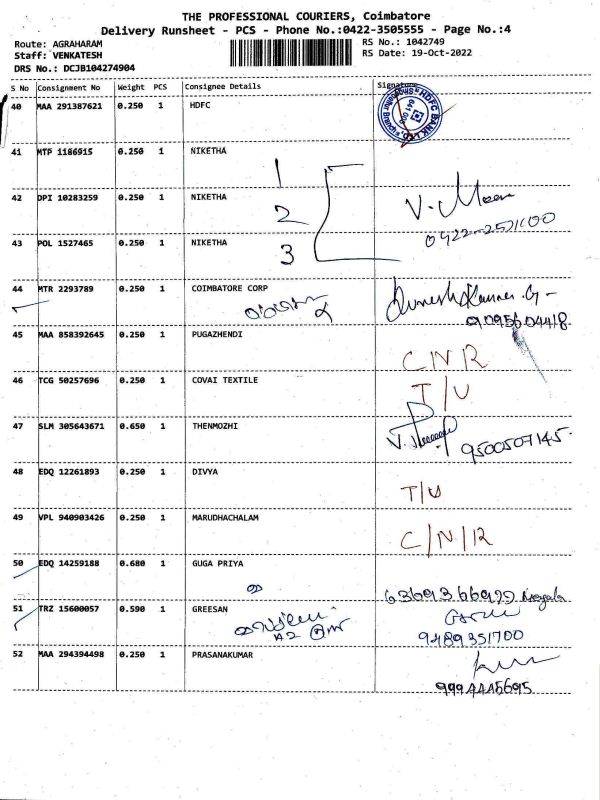 THE PROFESSIONAL COURIERS, Coimbatore
Delivery Runsheet - PCS - Phone No.:0422-3505555 - Page No.:4
Route: AGRAHARAM
RS No.: 1042749
Staff: VENKATESH
RS Date: 19-Oct-2022
DRS No.: DCJB104274904
S No Consignment No Weight PCS Consignee Details Signature
40 MAA 291387621 0.250 1 HDFC
HDFC BANK LTD.
41 MTP 1186915 0.250 1 NIKETHA
1
42 DPI 10283259 0.250 1 NIKETHA
2
0422-2521100
43 POL 1527465 0.250 1 NIKETHA
3
44 MTR 2293789 0.250 1 COIMBATORE CORP
9095604418
45 MAA 858392645 0.250 1 PUGAZHENDI
C/N/R
46 TCG 50257696 0.250 1 COVAI TEXTILE
T/U
47 SLM 305643671 0.650 1 THENMOZHI
9500507145
48 EDQ 12261893 0.250 1 DIVYA
T/U
49 VPL 940903426 0.250 1 MARUDHACHALAM
C/N/R
50 EDQ 14259188 0.680 1 GUGA PRIYA
51 TRZ 15600057 0.590 1 GREESAN
9489351700
52 MAA 294394498 0.250 1 PRASANAKUMAR
9994445695